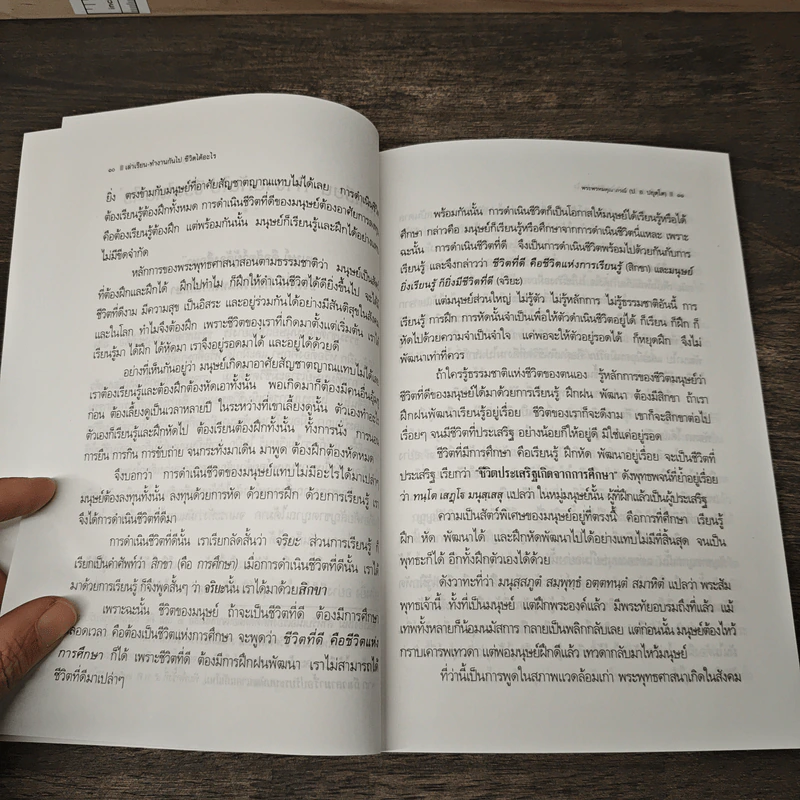 ๑๐ เล่าเรียน-ทำงานกันไป ชีวิตได้อะไร
ยิ่ง ตรงข้ามกับมนุษย์ที่อาศัยสัญชาตญาณแทบไม่ได้เลย การดำเนินชีวิต
ต้องเรียนรู้ต้องฝึกทั้งหมด การดำเนินชีวิตที่ดีของมนุษย์ต้องอาศัยการลงทุน
คือต้องเรียนรู้ต้องฝึก แต่พร้อมกันนั้น มนุษย์ก็เรียนรู้และฝึกได้อย่างแทบ
ไม่มีขีดจำกัด
หลักการของพระพุทธศาสนาสอนตามธรรมชาติว่า มนุษย์เป็นสัตว์
ที่ต้องฝึกและฝึกได้ ฝึกไปทำไม ก็ฝึกให้ดำเนินชีวิตได้ดียิ่งขึ้นไป จะได้
ชีวิตที่ดีงาม มีความสุข เป็นอิสระ และอยู่ร่วมกันได้อย่างมีสันติสุขในสังคม
และในโลก ทำไมจึงต้องฝึก เพราะชีวิตของเราที่เกิดมาตั้งแต่เริ่มต้น เราได้
เรียนรู้มา ได้ฝึก ได้หัดมา เราจึงอยู่รอดมาได้ และอยู่ได้ด้วยดี
อย่างที่เห็นกันอยู่ว่า มนุษย์เกิดมาอาศัยสัญชาตญาณแทบไม่ได้เลย
เราต้องเรียนรู้และต้องฝึกต้องหัดเอาทั้งนั้น พอเกิดมาก็ต้องมีคนอื่นอุ้มชู
ก่อน ต้องเลี้ยงดูเป็นเวลาหลายปี ในระหว่างที่เขาเลี้ยงดูนั้น ตัวเองทำอะไร
ตัวเองก็เรียนรู้และฝึกหัดไป ต้องเรียนต้องฝึกทั้งนั้น ทั้งการนั่ง การนอน
การยืน การกิน การขับถ่าย จนกระทั่งมาเดิน มาพูด ต้องฝึกต้องหัดหมด
จึงบอกว่า การดำเนินชีวิตของมนุษย์แทบไม่มีอะไรได้มาเปล่าๆ
มนุษย์ต้องลงทุนทั้งนั้น ลงทุนด้วยการหัด ด้วยการฝึก ด้วยการเรียนรู้ เรา
จึงได้การดำเนินชีวิตที่ดีมา
การดำเนินชีวิตที่ดีนั้น เราเรียกลัดสั้นว่า จริยะ ส่วนการเรียนรู้ ก็
เรียกเป็นคำศัพท์ว่า สิกขา (คือ การศึกษา) เมื่อการดำเนินชีวิตที่ดีนั้น เราได้
มาด้วยการเรียนรู้ ก็จึงพูดสั้นๆ ว่า จริยะนั้น เราได้มาด้วยสิกขา
เพราะฉะนั้น ชีวิตของมนุษย์ ถ้าจะเป็นชีวิตที่ดี ต้องมีการศึกษา
ตลอดเวลา คือต้องเป็นชีวิตแห่งการศึกษา จะพูดว่า ชีวิตที่ดี คือชีวิตแห่ง
การศึกษา ก็ได้ เพราะชีวิตที่ดี ต้องมีการฝึกฝนพัฒนา เราไม่สามารถได้
ชีวิตที่ดีมาเปล่าๆ
พระพรหมคุณาภรณ์ (ป. อ. ปยุตฺโต) ๑๑
พร้อมกันนั้น การดำเนินชีวิตก็เป็นโอกาสให้มนุษย์ได้เรียนรู้หรือได้
ศึกษา กล่าวคือ มนุษย์ก็เรียนรู้หรือศึกษาจากการดำเนินชีวิตนี่แหละ เพราะ
ฉะนั้น การดำเนินชีวิตที่ดี จึงเป็นการดำเนินชีวิตพร้อมไปด้วยกันกับการ
เรียนรู้ และจึงกล่าวว่า ชีวิตที่ดี คือชีวิตแห่งการเรียนรู้ (สิกขา) และมนุษย์
ยิ่งเรียนรู้ ก็ยิ่งมีชีวิตที่ดี (จริยะ)
แต่มนุษย์ส่วนใหญ่ ไม่รู้ตัว ไม่รู้หลักการ ไม่รู้ธรรมชาติอันนี้ การ
เรียนรู้ การฝึก การหัดนั้นจำเป็นเพื่อให้ตัวดำเนินชีวิตอยู่ได้ ก็เรียน ก็ฝึก ก็
หัดไปด้วยความจำเป็นจำใจ แค่พอจะให้ตัวอยู่รอดได้ ก็หยุดฝึก จึงไม่
พัฒนาเท่าที่ควร
ถ้าใครรู้ธรรมชาติแห่งชีวิตของตนเอง รู้หลักการของชีวิตมนุษย์ว่า
ชีวิตที่ดีของมนุษย์ได้มาด้วยการเรียนรู้ ฝึกฝน พัฒนา ต้องมีสิกขา ถ้าเรา
ฝึกฝนพัฒนาเรียนรู้อยู่เรื่อย ชีวิตของเราก็จะดีงาม เขาก็จะสิกขาต่อไป
เรื่อยๆ จนมีชีวิตที่ประเสริฐ อย่างน้อยก็ให้อยู่ดี มิใช่แค่อยู่รอด
ชีวิตที่มีการศึกษา คือเรียนรู้ ฝึกหัด พัฒนาอยู่เรื่อย จะเป็นชีวิตที่
ประเสริฐ เรียกว่า "ชีวิตประเสริฐเกิดจากการศึกษา" ดังพุทธพจน์ที่ย้ำอยู่เรื่อย
ว่า ทนฺโต เสฏฺโฐ มนุสฺเสสุ แปลว่า ในหมู่มนุษย์นั้น ผู้ที่ฝึกแล้วเป็นผู้ประเสริฐ
ความเป็นสัตว์พิเศษของมนุษย์อยู่ที่ตรงนี้ คือการที่ศึกษา เรียนรู้
ฝึก หัด พัฒนาได้ และฝึกหัดพัฒนาไปได้อย่างแทบไม่มีที่สิ้นสุด จนเป็น
พุทธะก็ได้ อีกทั้งฝึกตัวเองได้ด้วย
ดังวาทะที่ว่า มนุสฺสภูตํ สมฺพุทฺธํ อตฺตทนฺตํ สมาหิตํ แปลว่า พระสัม
พุทธเจ้านี้ ทั้งที่เป็นมนุษย์ แต่ฝึกพระองค์แล้ว มีพระทัยอบรมถึงที่แล้ว แม้
เทพทั้งหลายก็น้อมนมัสการ กลายเป็นพลิกกลับเลย แต่ก่อนนั้น มนุษย์ต้องไหว้
กราบเคารพเทวดา แต่พอมนุษย์ฝึกดีแล้ว เทวดากลับมาไหว้มนุษย์
ที่ว่านี้เป็นการพูดในสภาพแวดล้อมเก่า พระพุทธศาสนาเกิดในสังคม